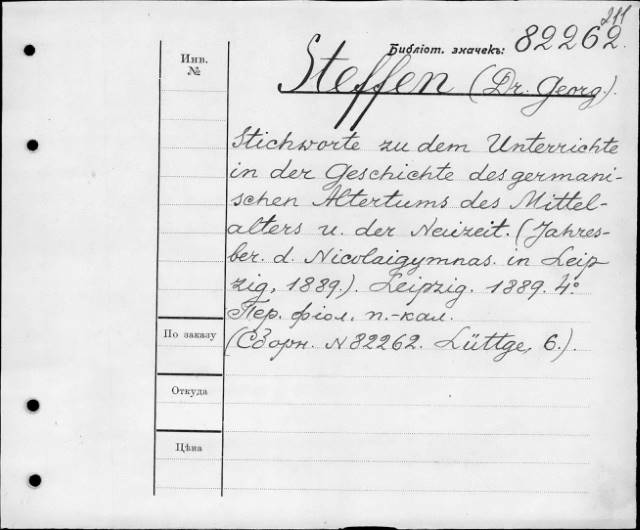 211
Библіот. значекъ: 82262.
Инв.
№
Steffen (Dr. Georg).
Stichworte zu dem Unterrichte
in der Geschichte des germani-
schen Altertums des Mittel-
alters u. der Neuzeit. (Jahres-
ber. d. Nicolaigymnas. in Leip
zig, 1889.). Leipzig. 1889. 4º
Пер. фіол. п.-кал.
По заказу
(Сборн. N 82262. Lüttge, 6.).
Откуда
Цѣна